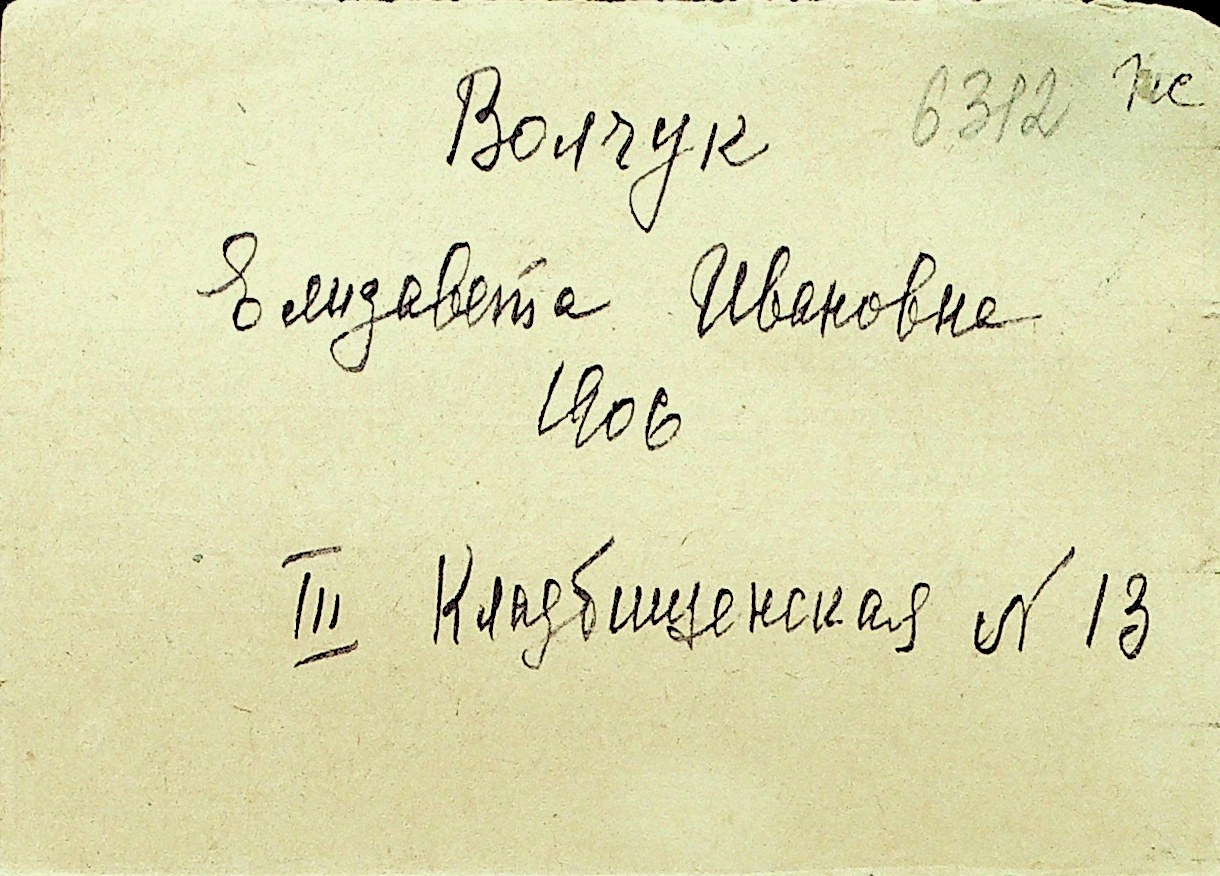 6312
Волчук
Елизавета Ивановна
1906
III Кладбищенская N 13